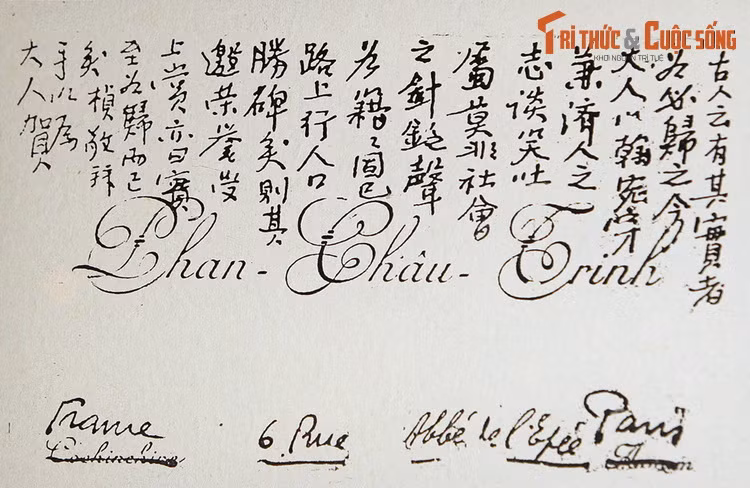 TRI THỨC & CUỘC SỐNG
KHƠI NGUỒN TRÍ TUỆ
古人云有其實者
名必歸之今
大人以翰宛才
兼濟人之
志談笑吐
屬莫非社會
之針砭聲
名籍〻固已
路上行人口
勝碑矣則其
邀榮譽受
上賞亦曰實
至名歸而已
矣楨敬拜
手以為
大人賀
Phan-Châu-Trinh
France 6. Rue Abbé de l'Epée Paris
Cochinchine Annam